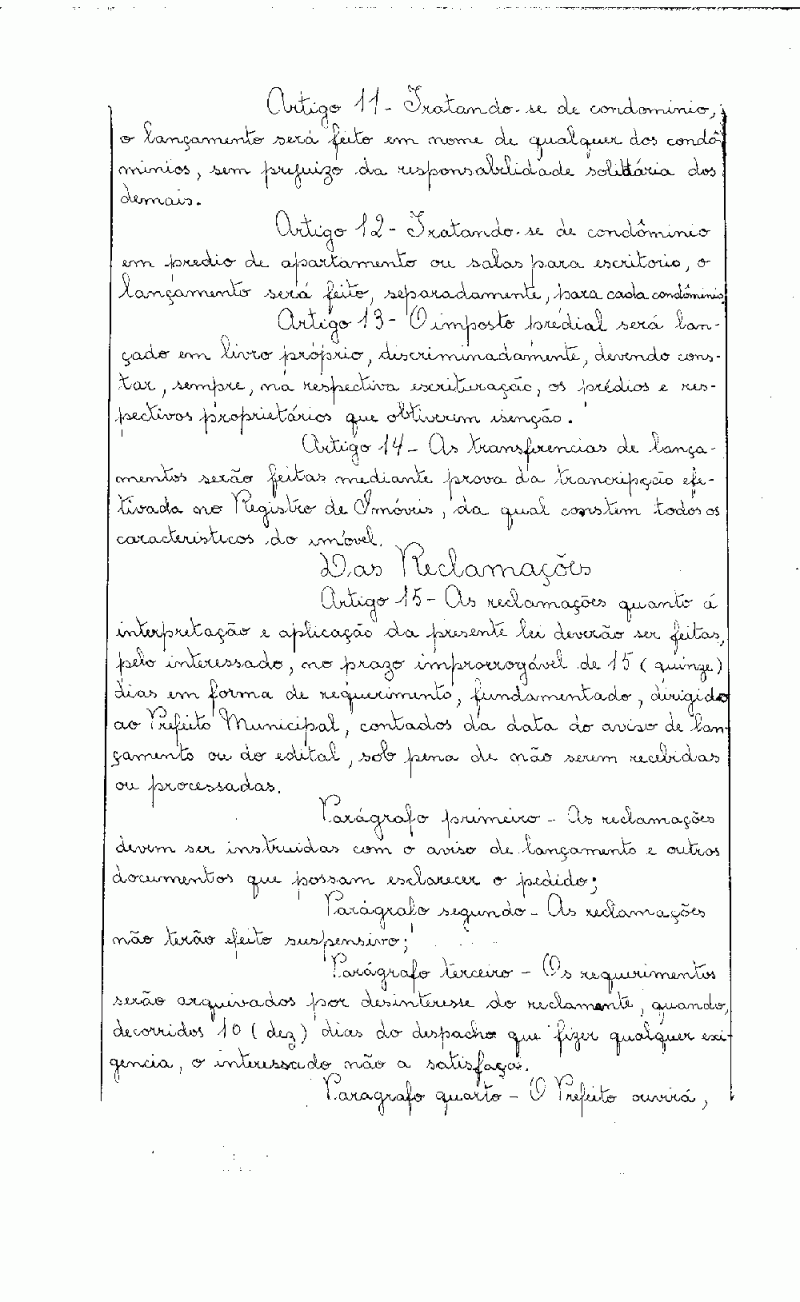 Artigo 11 - Tratando-se de condominio,
o lançamento será feito em nome de qualquer dos condô-
minios, sem prejuizo da responsabilidade solidária dos
demais.
Artigo 12 - Tratando-se de condôminio
em predio de apartamento ou salas para escritorio, o
lançamento será feito, separadamente, para cada condôminio.
Artigo 13 - O imposto predial será lan-
çado em livro próprio, discriminadamente, devendo cons-
tar, sempre, na respectiva escrituração, os prédios e res-
pectivos proprietários que obtiverem isenção.
Artigo 14 - As transferencias de lança-
mentos serão feitas mediante prova da trancripção efe-
tivada no Registro de Imóveis, da qual constem todos os
caracteristicos do imóvel.
Das Reclamações
Artigo 15 - As reclamações quanto á
interpretação e aplicação da presente lei deverão ser feitas,
pelo interessado, no prazo improrrogável de 15 (quinze)
dias em forma de requerimento, fundamentado, dirigido
ao Prefeito Municipal, contados da data do aviso de lan-
çamento ou do edital, sob pena de não serem recebidas
ou processadas.
Parágrafo primeiro - As reclamações
devem ser instruidas com o aviso de lançamento e outros
documentos que possam esclarecer o pedido;
Parágrafo segundo - As reclamações
não terão efeito suspensivo;
Parágrafo terceiro - Os requerimentos
serão arquivados por desinteresse do reclamente, quando,
decorridos 10 (dez) dias do despacho que fizer qualquer exi-
gencia, o interessado não a satisfaça.
Paragrafo quarto - O Prefeito ouvirá,